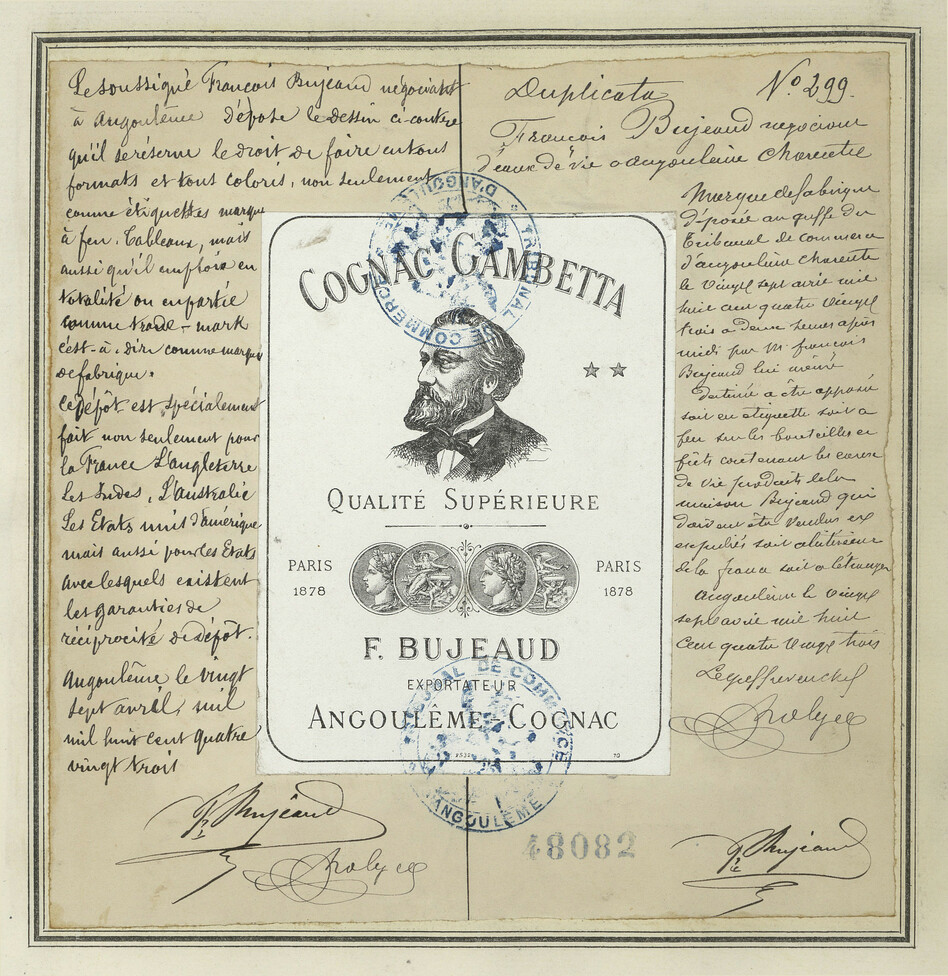 Le soussigné François Bujeaud négociant
à Angoulême dépose le dessin ci-contre
qu'il se réserve le droit de faire en tous
formats et tous coloris, non seulement
comme étiquettes marque
à feu, Tableaux, mais
aussi qu'il emploie en
totalité ou en partie
comme trade-mark
c'est-à-dire comme marque
de fabrique.
Ce dépôt est spécialement
fait non seulement pour
la France L'angleterre
Les Indes, L'Australie
Les Etats unis d'amérique
mais aussi pour les Etats
avec lesquels existent
les garanties de
réciprocité de dépôt.
Angoulême le vingt
sept avril, mil
mil huit cent quatre
vingt trois
F. Bujeaud
Duplicata No. 299.
François Bujeaud negociant
d'eaux de vie a angoulême charente
Marque de fabrique
déposée au greffe du
Tribunal de commerce
d'angoulême charente
le vingt sept avril mil
huit cent quatre vingt
trois a deux heures après
midi par Mr françois
Bujeaud lui même
destinée a être apposée
soit en etiquette soit a
feu sur les bouteilles et
fûts contenant les eaux
de vie produits de la
maison Bujeaud qui
doivent être vendus et
expediés soit a l'intérieur
de la france soit a l'étranger
Angoulême le vingt
sept avril mil huit
cent quatre vingt trois
Le greffier en chef
F. Bujeaud
COGNAC GAMBETTA
QUALITÉ SUPÉRIEURE
PARIS
1878
PARIS
1878
F. BUJEAUD
EXPORTATEUR
ANGOULÊME-COGNAC
TRIBUNAL DE COMMERCE D'ANGOULÊME
TRIBUNAL DE COMMERCE D'ANGOULÊME
48082